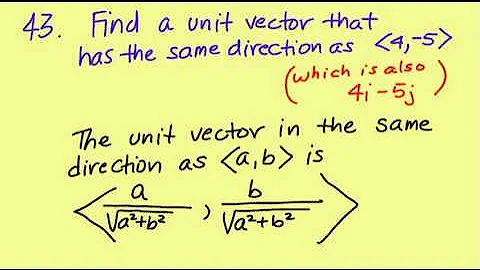 43. Find a unit vector that
has the same direction as <4,-5>
(which is also
4i-5j)
The unit vector in the same
direction as <a,b> is
<a/√a²+b², b/√a²+b²>